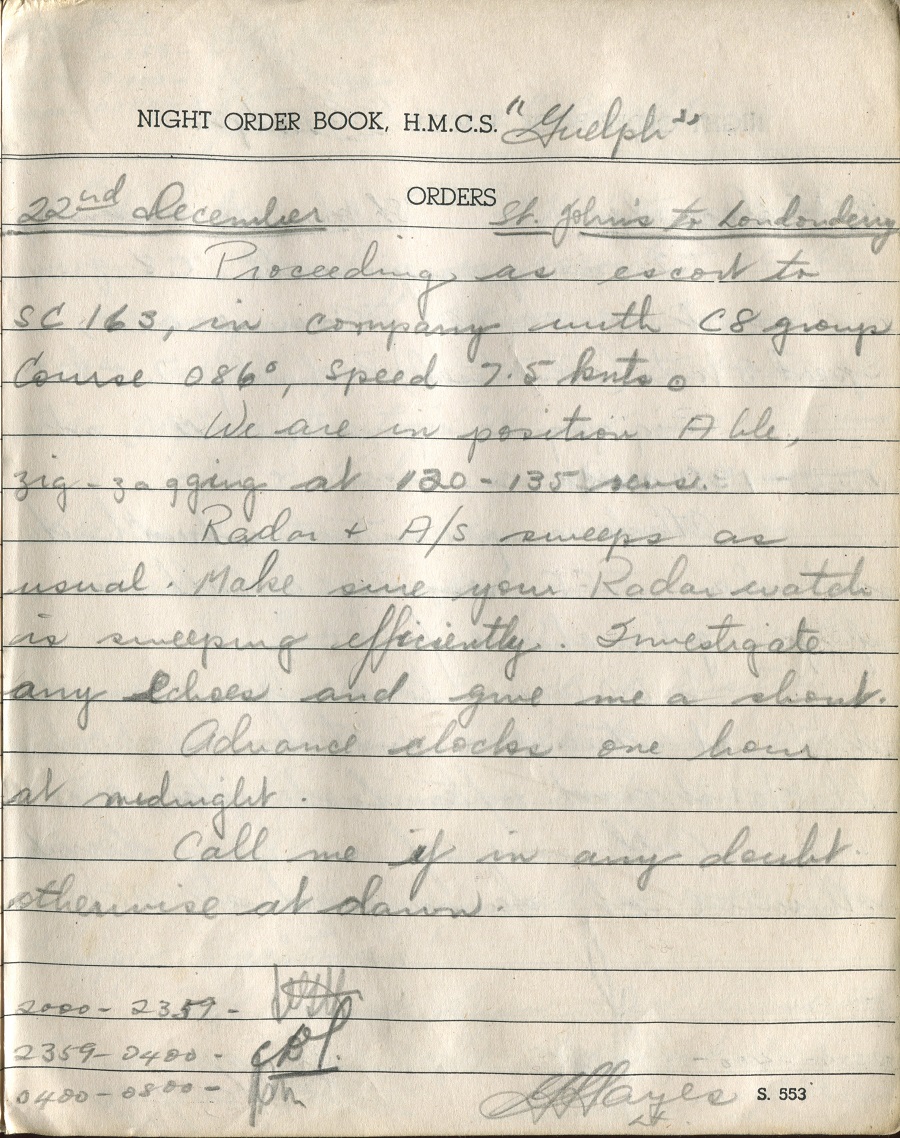 NIGHT ORDER BOOK, H.M.C.S. "Guelph"
ORDERS
22nd December St. John's to Londonderry
Proceeding as escort to
SC 163, in company with C8 group
Course 086°, speed 7.5 knts.
We are in position Able,
zig-zagging at 120-135 revs.
Radar + A/S sweeps as
usual. Make sure your Radar watch
is sweeping efficiently. Investigate
any Echoes and give me a shout.
Advance clocks one hour
at midnight.
Call me if in any doubt.
otherwise at dawn.
2000-2359-
2359-0400-
0400-0800-
Hayes S. 553
Lt.